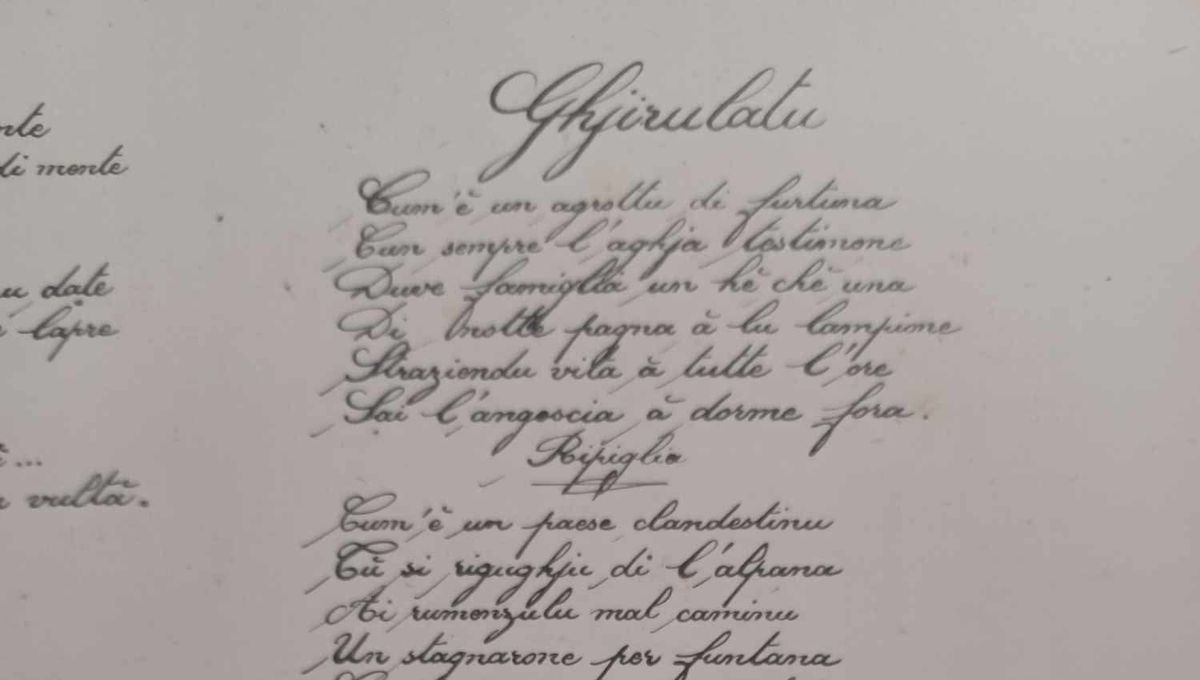 nte
di monte
u date
lapre
...
vultà.
Ghjirulatu
Cum'è un agrottu di furtuna
Cun sempre l'aghja testimone
Duve famiglia un hè chè una
Di notte pagna à lu lampione
Straziendu vita à tutte l'ore
Sai l'angoscia à dorme fora.
Ripiglia
Cum'è un paese clandestinu
Tù si rigughju di l'alpana
Ai rumenzulu mal caminu
Un stagnarone per funtana